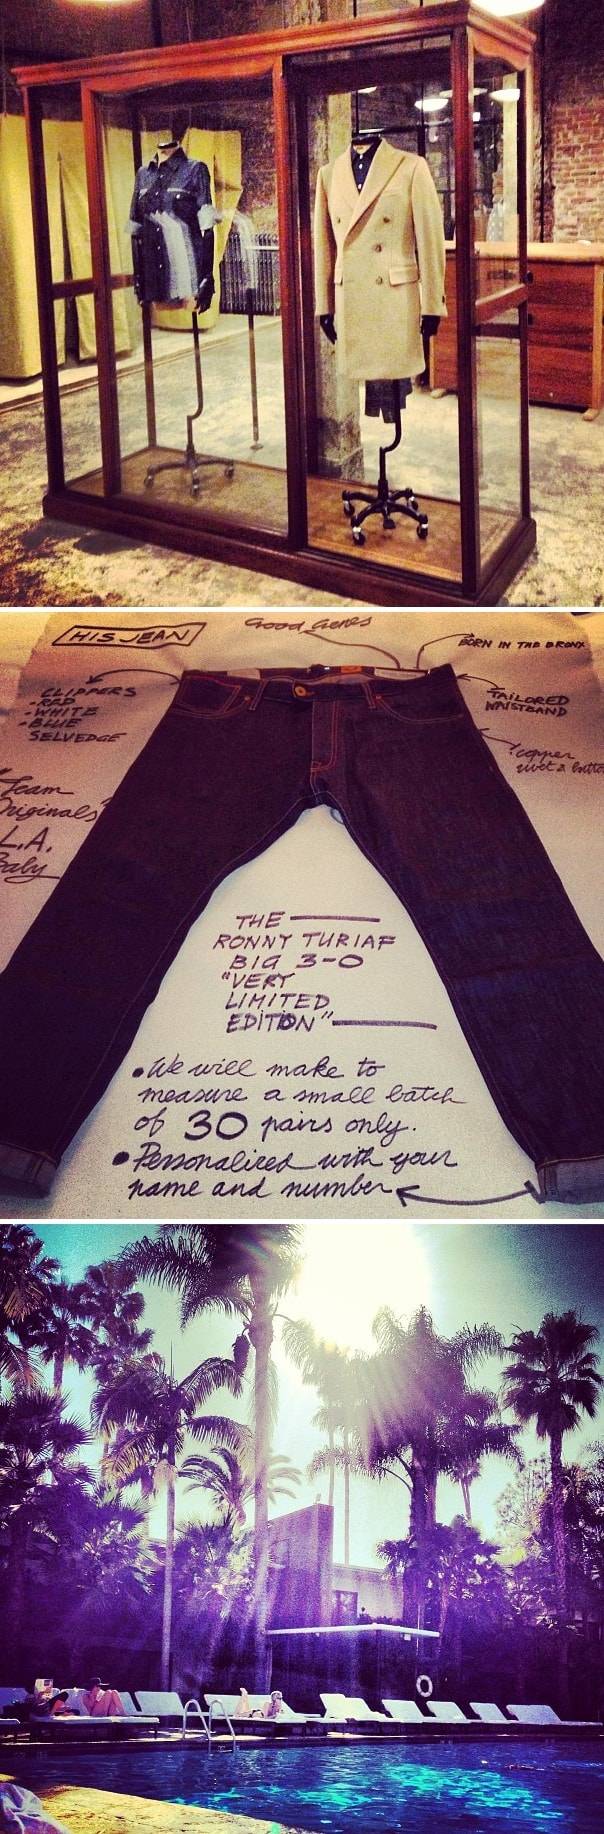 HIS JEAN
Good Genes
BORN IN THE BRONX
CLIPPERS
-RED
-WHITE
-BLUE
SELVEDGE
TAILORED
WAISTBAND
copper
rivet & button
"Team
Originals"
L.A.
Baby
THE
RONNY TURIAF
BIG 3-0
"VERY
LIMITED
EDITION"
• We will make to
measure a small batch
of 30 pairs only.
• Personalized with your
name and number